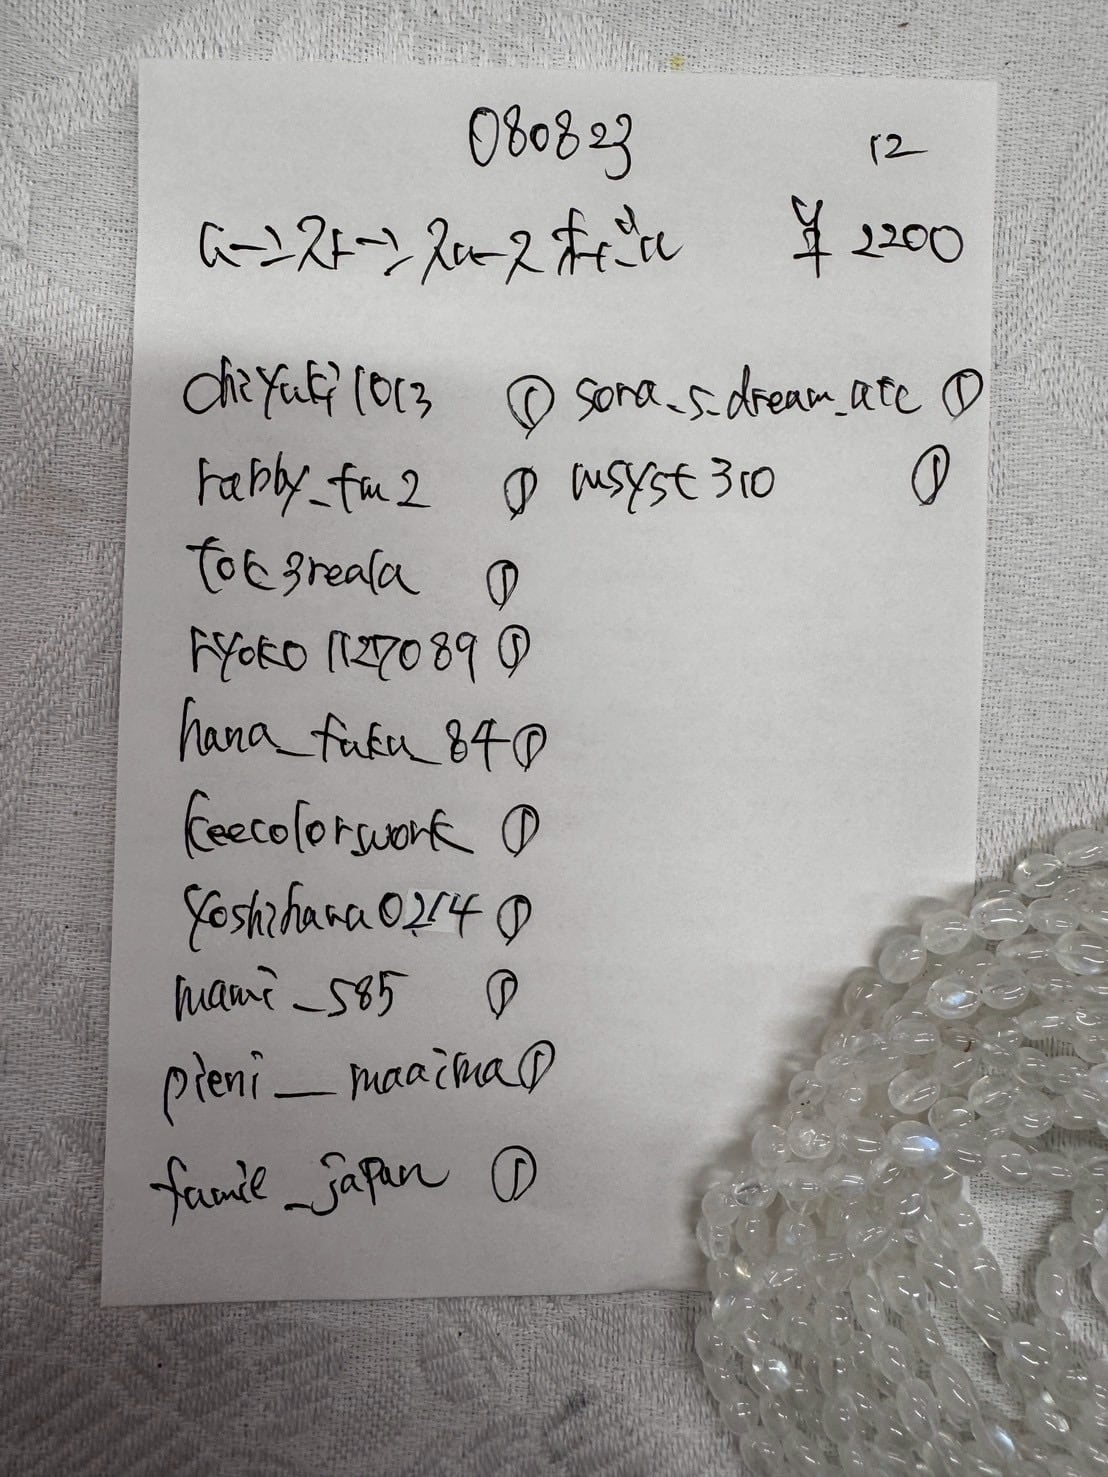 080823
12
¥2200
chiyuki1013 ①
rabby_fm2 ①
tok3reala ①
ryoko1127089 ①
hana_fuku_84 ①
keecolorswork ①
yoshihana0214 ①
mami_585 ①
pieni__maaima ①
famie_japan ①
sora_s_dream_atc ①
msyst310 ①